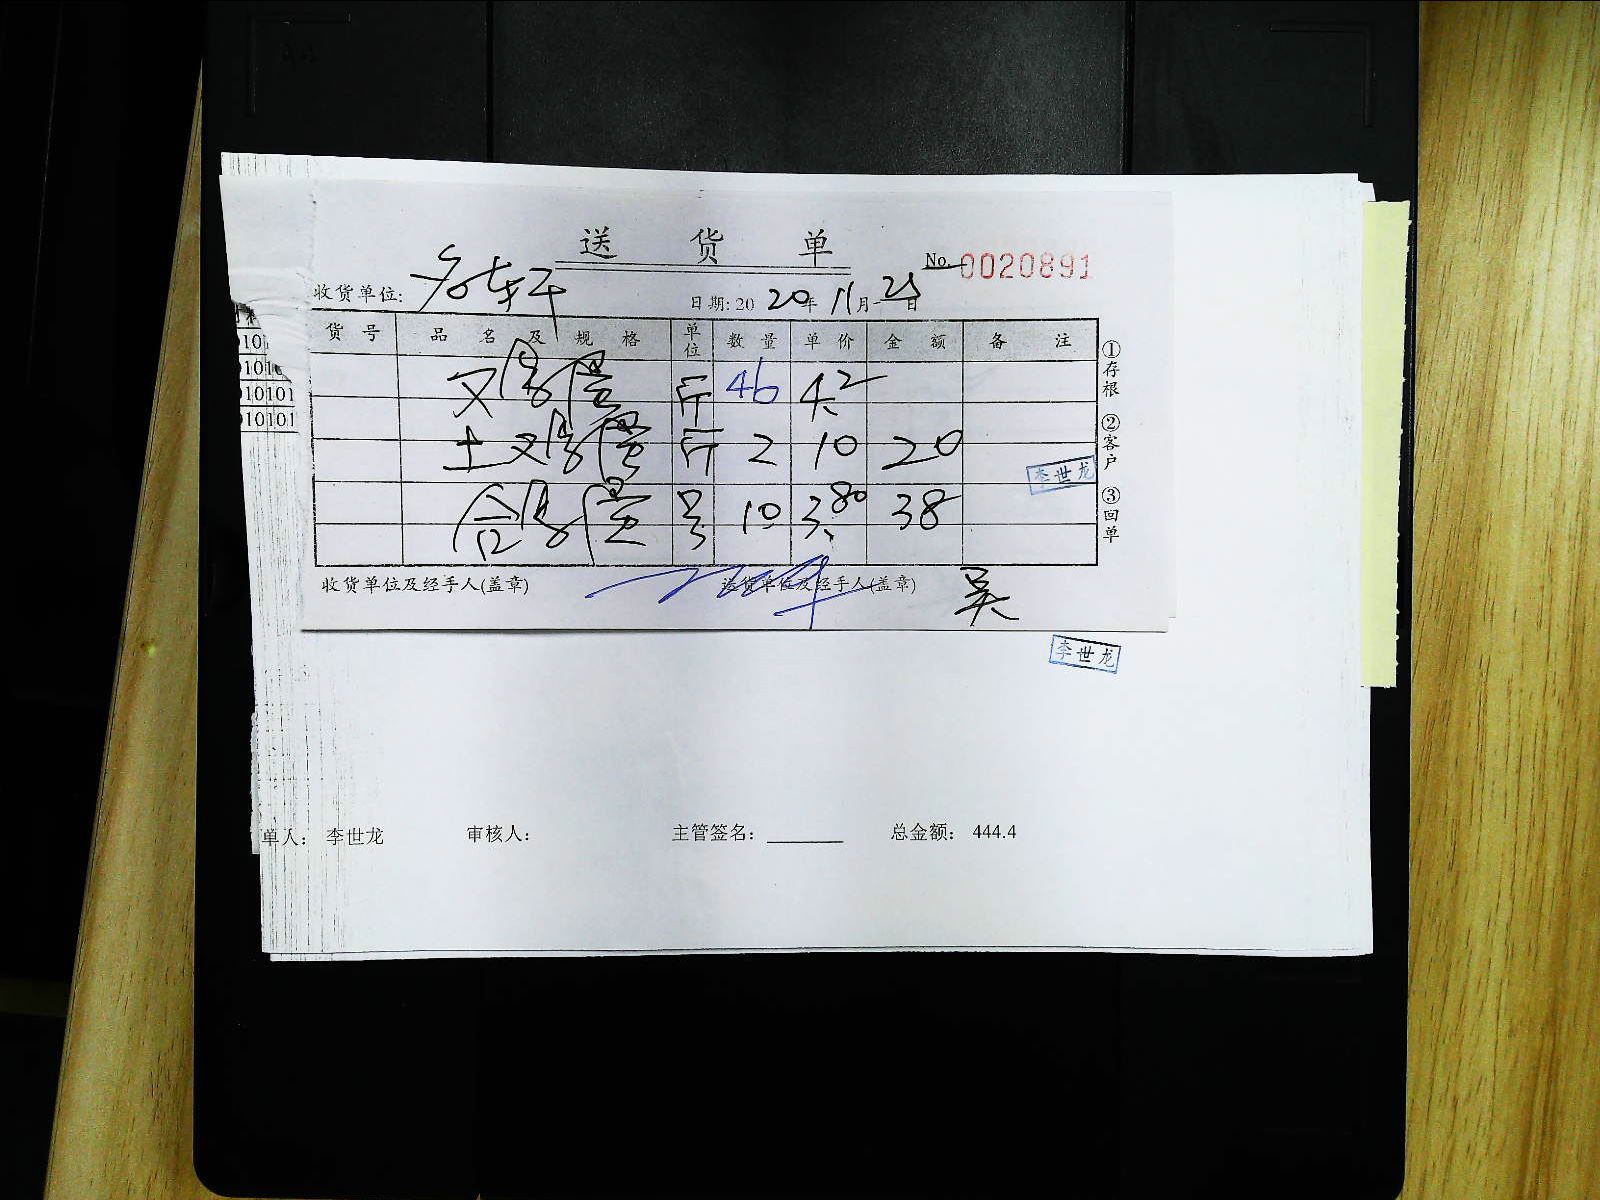 送 货 单
No. 0020891
收货单位: 名轩
日期: 20 20 年 11 月 25 日
货 号 品 名 及 规 格 单位 数 量 单 价 金 额 备 注
又鸡蛋 斤 46 4.2
土又鸡蛋 斤 2 10 20
合鸡蛋 10 3.80 38
①存根 ②客户 ③回单
李世龙
收货单位及经手人(盖章) 送货单位及经手人(盖章) 吴
李世龙
0101
0101
010101
010101
单人: 李世龙 审核人: 主管签名: 总金额: 444.4